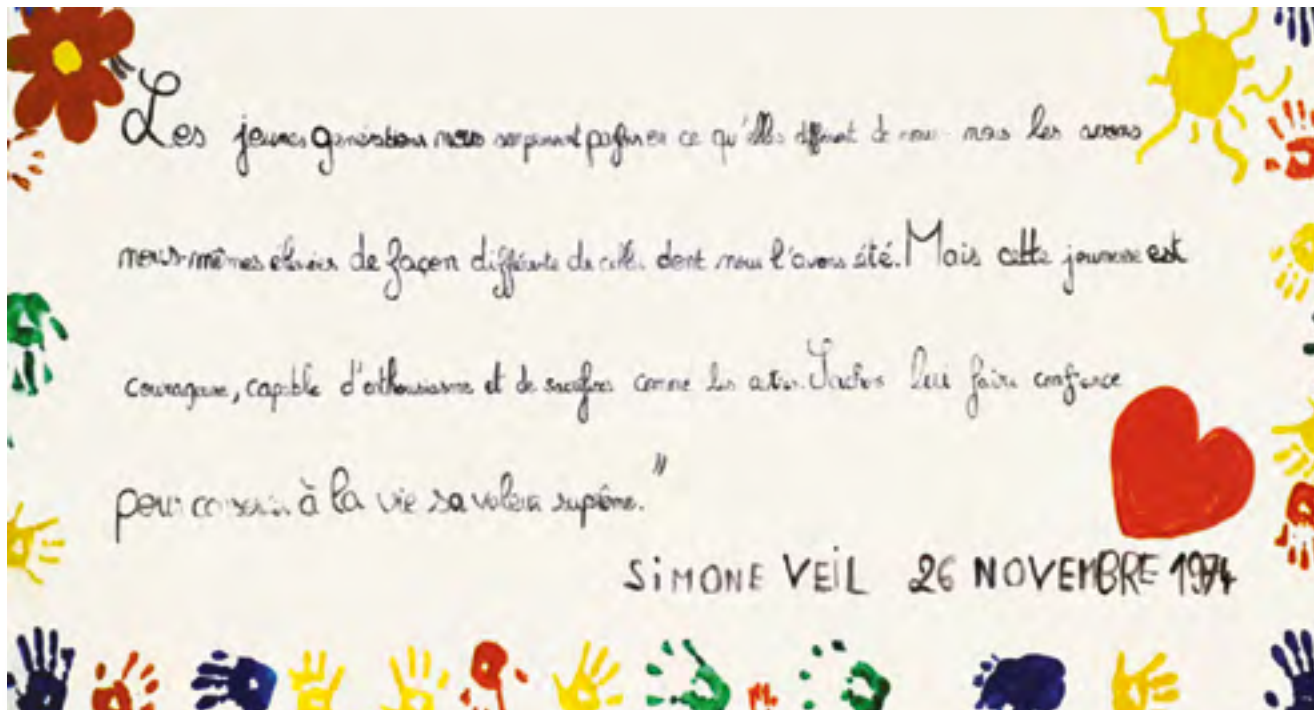 "Les jeunes générations nous surprennent parfois en ce qu'elles diffèrent de nous. nous les avons
nous-mêmes élevées de façon différente de celle dont nous l'avons été. Mais cette jeunesse est
courageuse, capable d'enthousiasme et de sacrifices comme les autres. Sachons leur faire confiance
pour conserver à la vie sa valeur suprême."
SiMONE VEiL 26 NOVEMBRE 1974